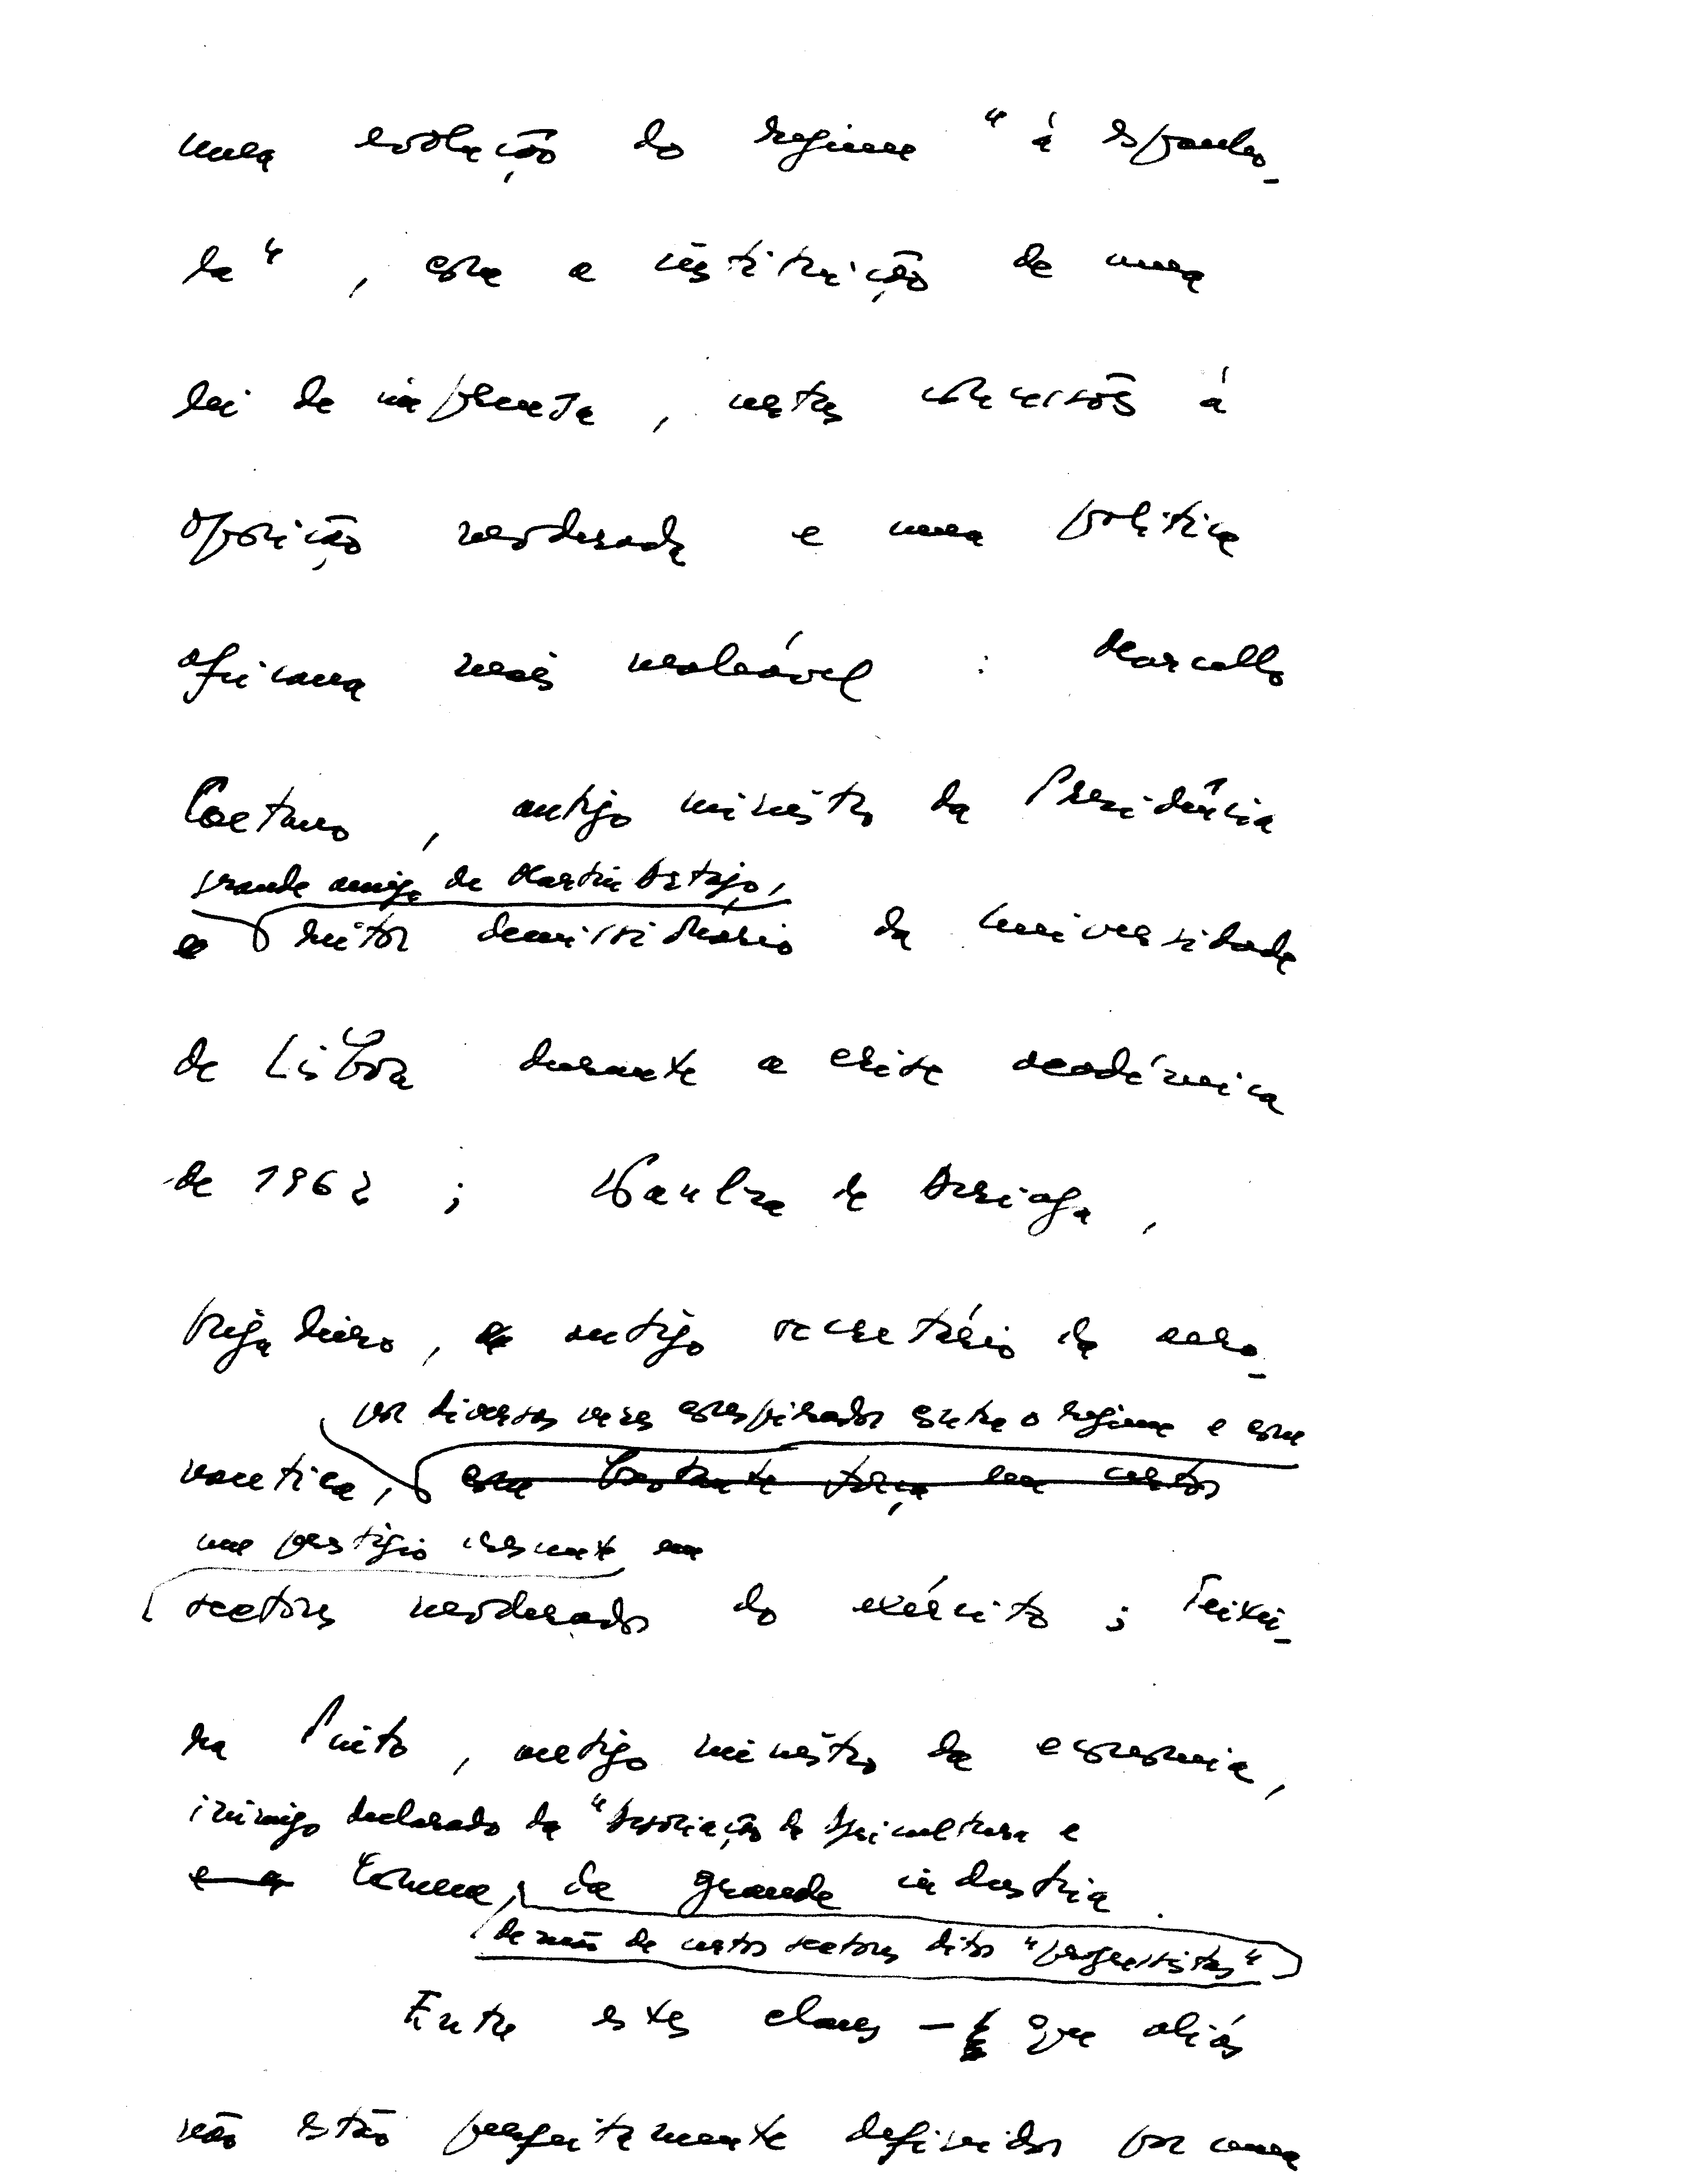 uma evolução do regime "à espanho-
la", com a instituição de uma
lei de imprensa, certas concessões à
oposição moderada e uma política
africana mais maleável: Marcello
Caetano, antigo ministro da Presidência
grande amigo de Martin Artajo,
e reitor demissionário da Universidade
de Lisboa durante a crise académica
de 1962; Kaulza de Arriaga,
brigadeiro, antigo secretário da aero-
por diversas vezes conspirador contra o regime e com
náutica, com bastante força em certos
um prestígio crescente em
sectores moderados do exército; Teixei-
ra Pinto, antigo ministro da economia,
inimigo declarado da "Associação de Agricultura e
e a Comércio, da grande indústria.
de certos sectores ditos "progressistas"
Entre estes clans - que aliás
não estão perfeitamente definidos por uma